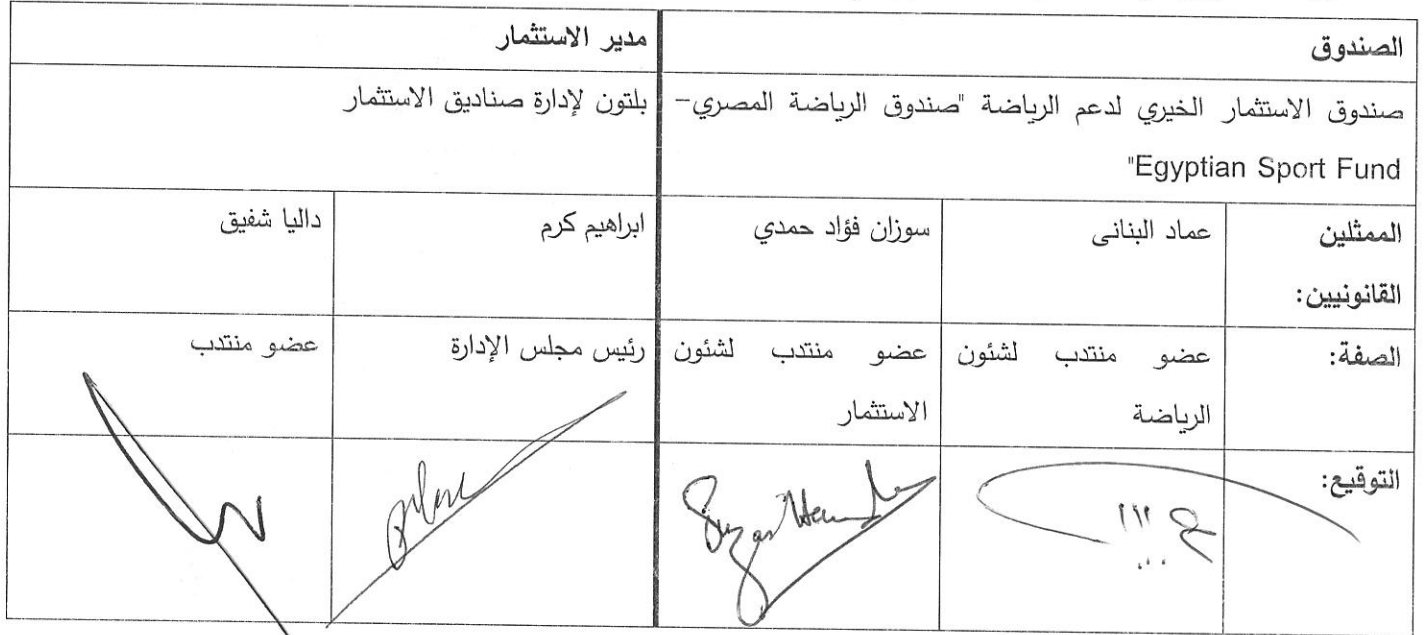 الصندوق
مدير الاستثمار
صندوق الاستثمار الخيري لدعم الرياضة "صندوق الرياضة المصري–
Egyptian Sport Fund"
بلتون لإدارة صناديق الاستثمار
الممثلين
القانونيين:
عماد البنانى
سوزان فؤاد حمدي
ابراهيم كرم
داليا شفيق
الصفة:
عضو منتدب لشئون
الرياضة
عضو منتدب لشئون
الاستثمار
رئيس مجلس الإدارة
عضو منتدب
التوقيع: